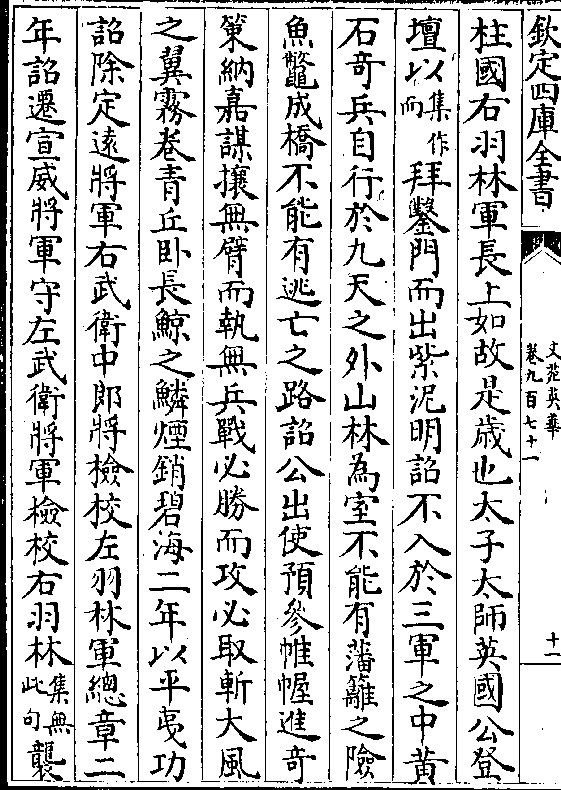 欽定四庫全書
文苑英華
卷九百七十一
十二
柱國右羽林軍長上如故是歲也太子太師英國公登
壇以集作而拜鑿門而出紫泥明詔不入於三軍之中黃
石奇兵自行於九天之外山林為室不能有藩籬之險
魚鼈成橋不能有逃亡之路詔公出使預參帷幄進奇
策納嘉謀攘無臂而執無兵戰必勝而攻必取斬大風
之翼霧卷青丘卧長鯨之鱗煙銷碧海二年以平夷功
詔除定遠將軍右武衛中郎將檢校左羽林軍總章二
年詔遷宣威將軍守左武衛將軍檢校右羽林集無此句襲